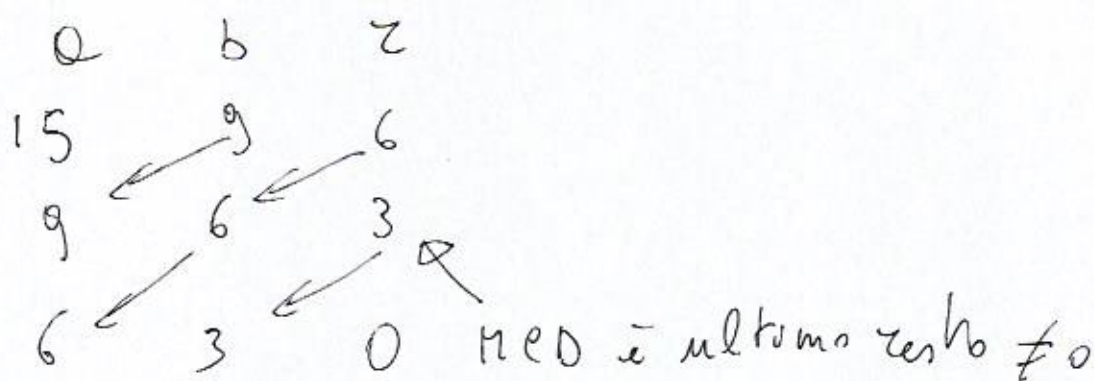 a b r
15 9 6
9 6 3
6 3 0 MCD è ultimo resto ≠ 0